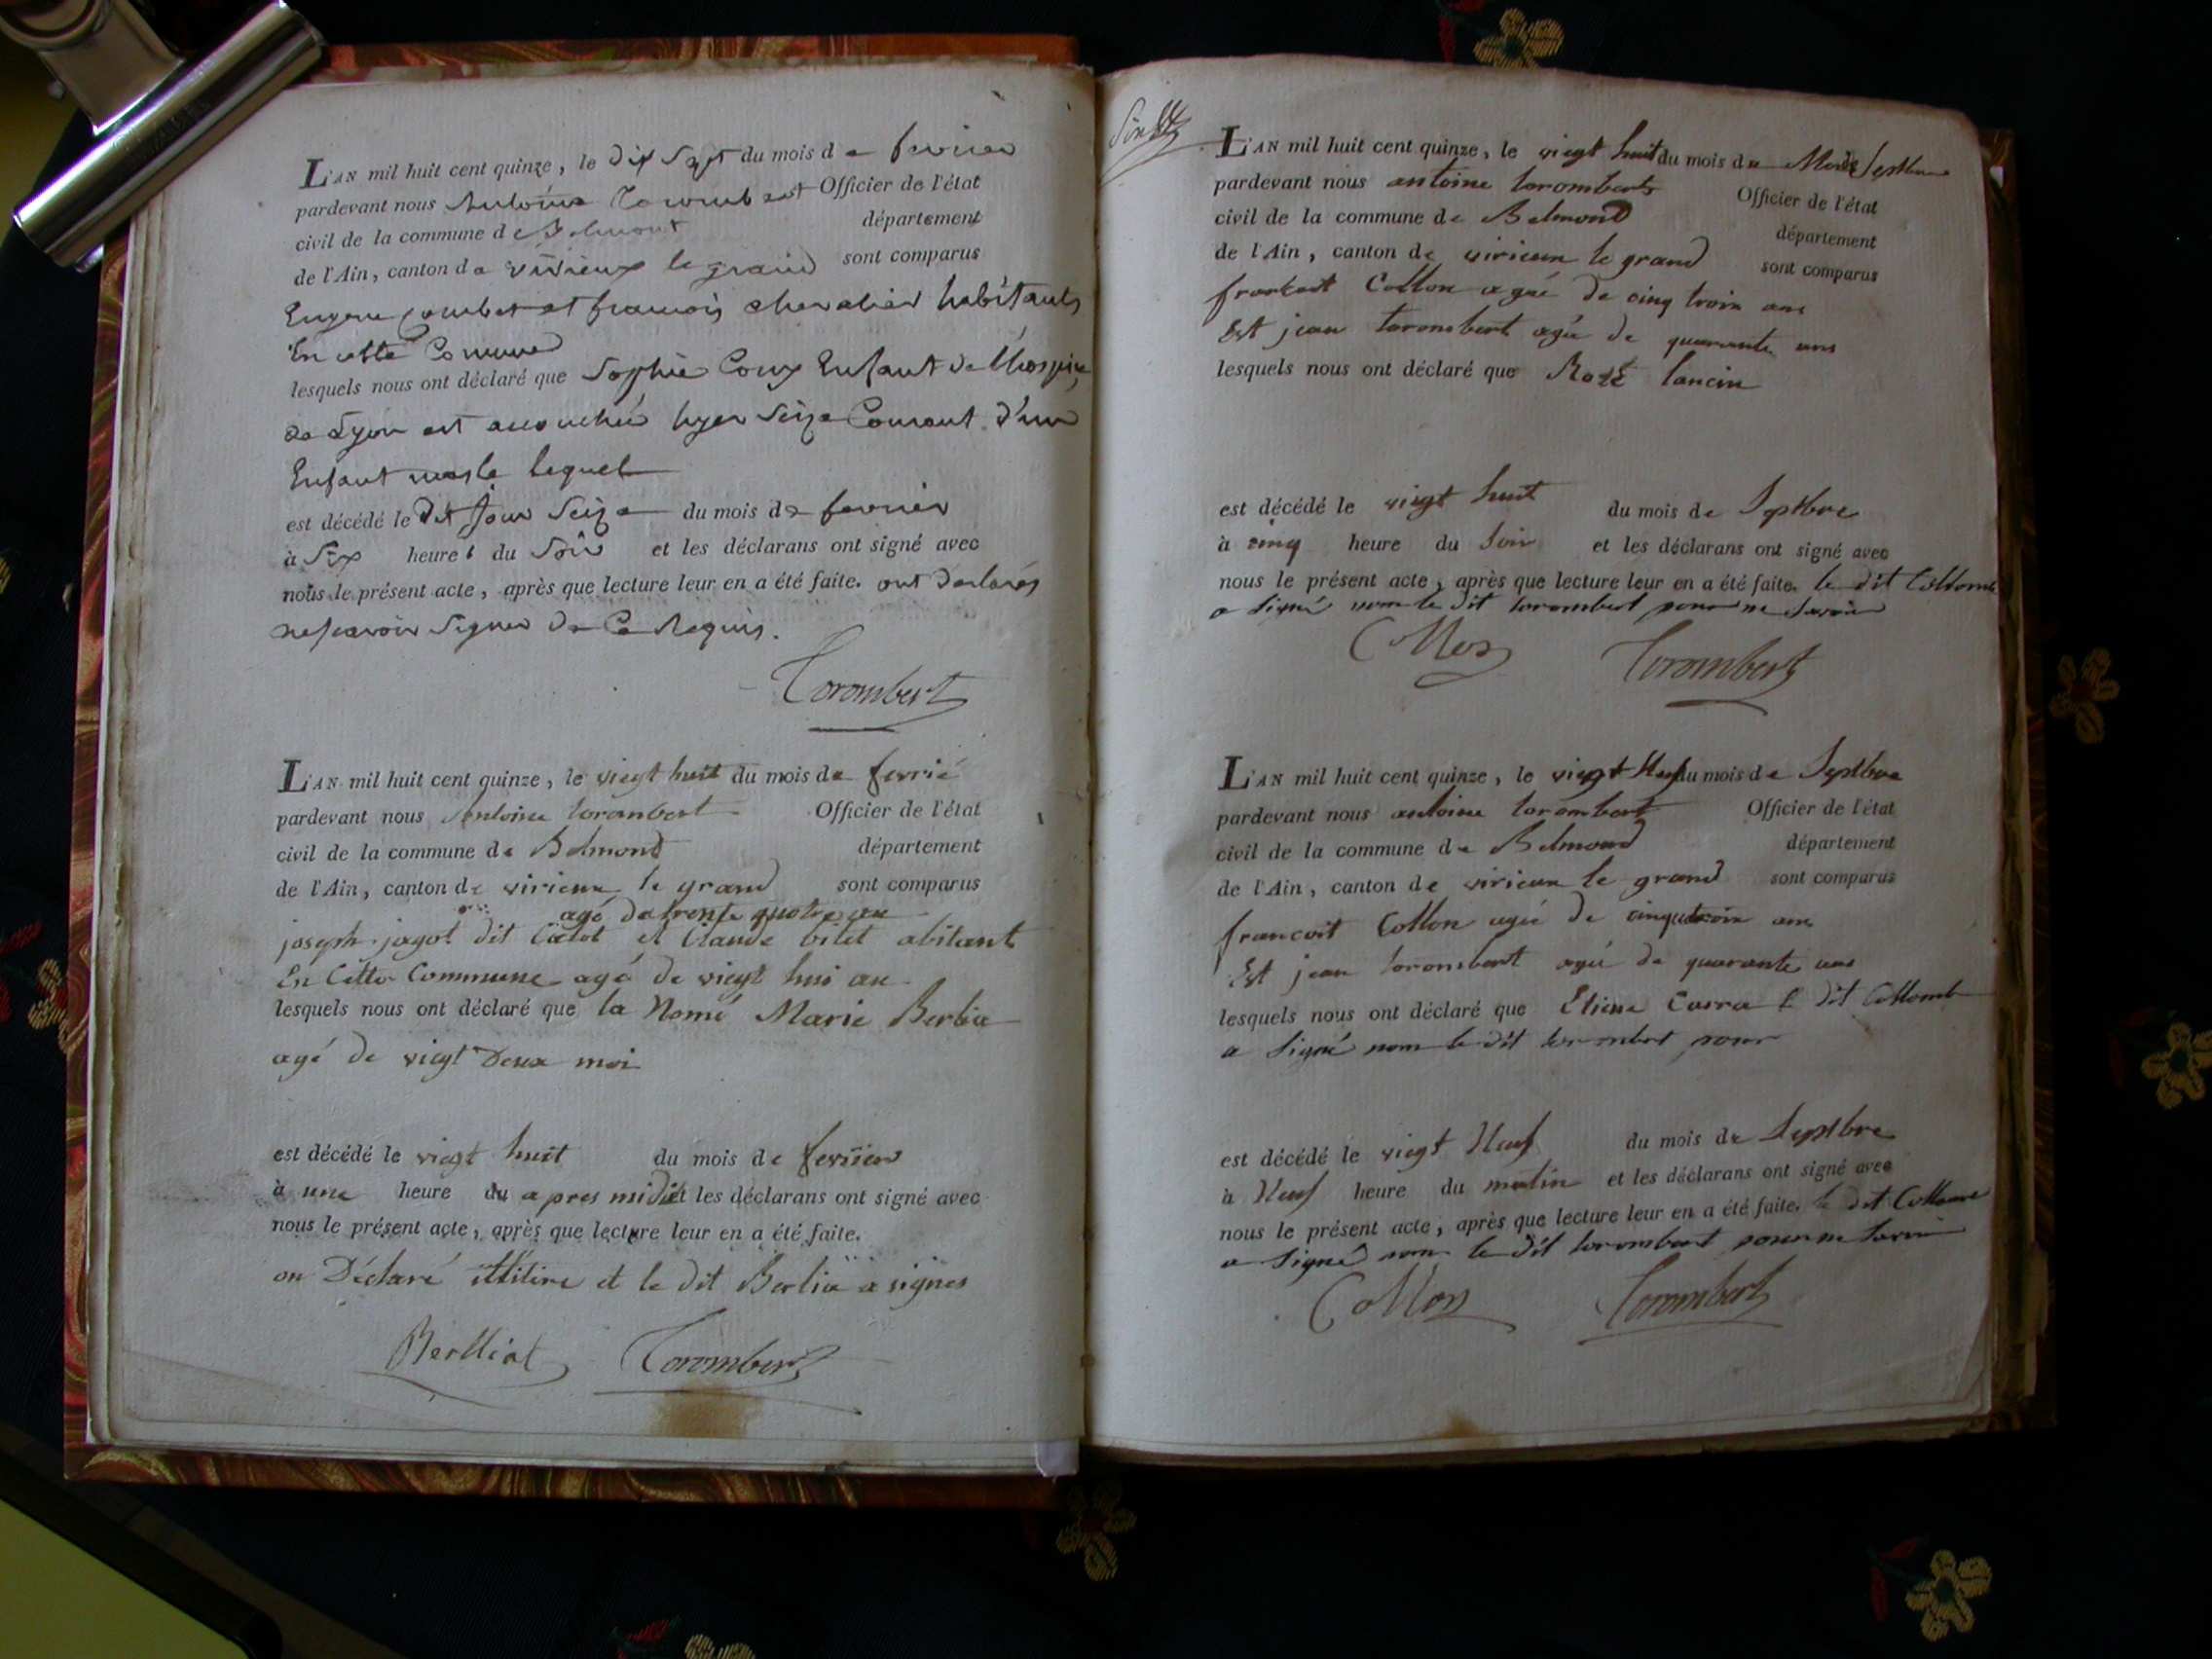 L'AN mil huit cent quinze, le dix Sept du mois de fevrier
pardevant nous Antoine Torombert Officier de l'état
civil de la commune de Belmont département
de l'Ain, canton de virieux le grand sont comparus
Eugene joumbet et francois chevalier habitants
En cette Commune
lesquels nous ont déclaré que Sophie Coux Enfant de l'hospice
de Lyon est accouchée hyer Seize Courant d'un
Enfant masle lequel
est décédé le dit jour Seize du mois de fevrier
à Six heures du Soir et les déclarans ont signé avec
nous le présent acte, après que lecture leur en a été faite. ont declarés
ne savoir Signer de Ce Requis.
Torombert
L'AN mil huit cent quinze, le viegt huit du mois de fevrié
pardevant nous Antoine torombert Officier de l'état
civil de la commune de Belmond département
de l'Ain, canton de virieux le grand sont comparus
agé de trente quatre an
joseph jagot dit et Claude bilet abitant
En Cette Commune agé de viegt hui an
lesquels nous ont déclaré que la Nomé Marie Berlia
agé de viegt Deux moi
est décédé le viegt huit du mois de fevrier
à une heure du apres midi et les déclarans ont signé avec
nous le présent acte, après que lecture leur en a été faite.
on Déclaré et le dit Berlia a signes
Berlliat Torombert
L'AN mil huit cent quinze, le viegt huit du mois de Septbre
pardevant nous antoine torombert Officier de l'état
civil de la commune de Belmond département
de l'Ain, canton de virieux le grand sont comparus
Collon agé de cinq troix ans
Est jean torombert agée de quarante ans
lesquels nous ont déclaré que Rose lancin
est décédé le viegt huit du mois de Septbre
à cinq heure du Soir et les déclarans ont signé avec
nous le présent acte, après que lecture leur en a été faite. le dit Collomb
a Signé nom le dit torombert pour ne Savoir
Collon Torombert
L'AN mil huit cent quinze, le viegt Neuf du mois de Septbre
pardevant nous antoine torombert Officier de l'état
civil de la commune de Belmond département
de l'Ain, canton de virieux le grand sont comparus
francoit Collon agé de cinqutroix ans
Est jean torombert agé de quarante ans
lesquels nous ont déclaré que Etiene Carra le dit Collomb
a Signé nom le dit torombert pour
est décédé le viegt Neuf du mois de Septbre
à Neuf heure du matin et les déclarans ont signé avec
nous le présent acte, après que lecture leur en a été faite. le dit
a Signé nom le dit torombert pour ne Savoir
Collon Torombert